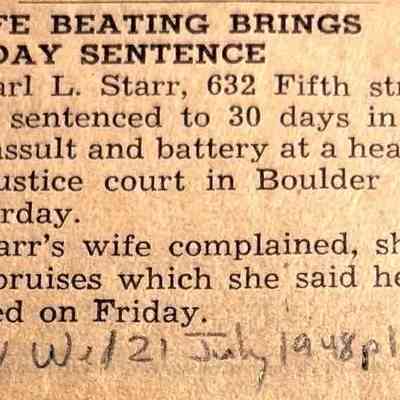 FE BEATING BRINGS
DAY SENTENCE
arl L. Starr, 632 Fifth str
sentenced to 30 days in
assult and battery at a hea
ustice court in Boulder
rday.
arr's wife complained, sh
bruises which she said he
ed on Friday.
Wed 21 July 1948 p1